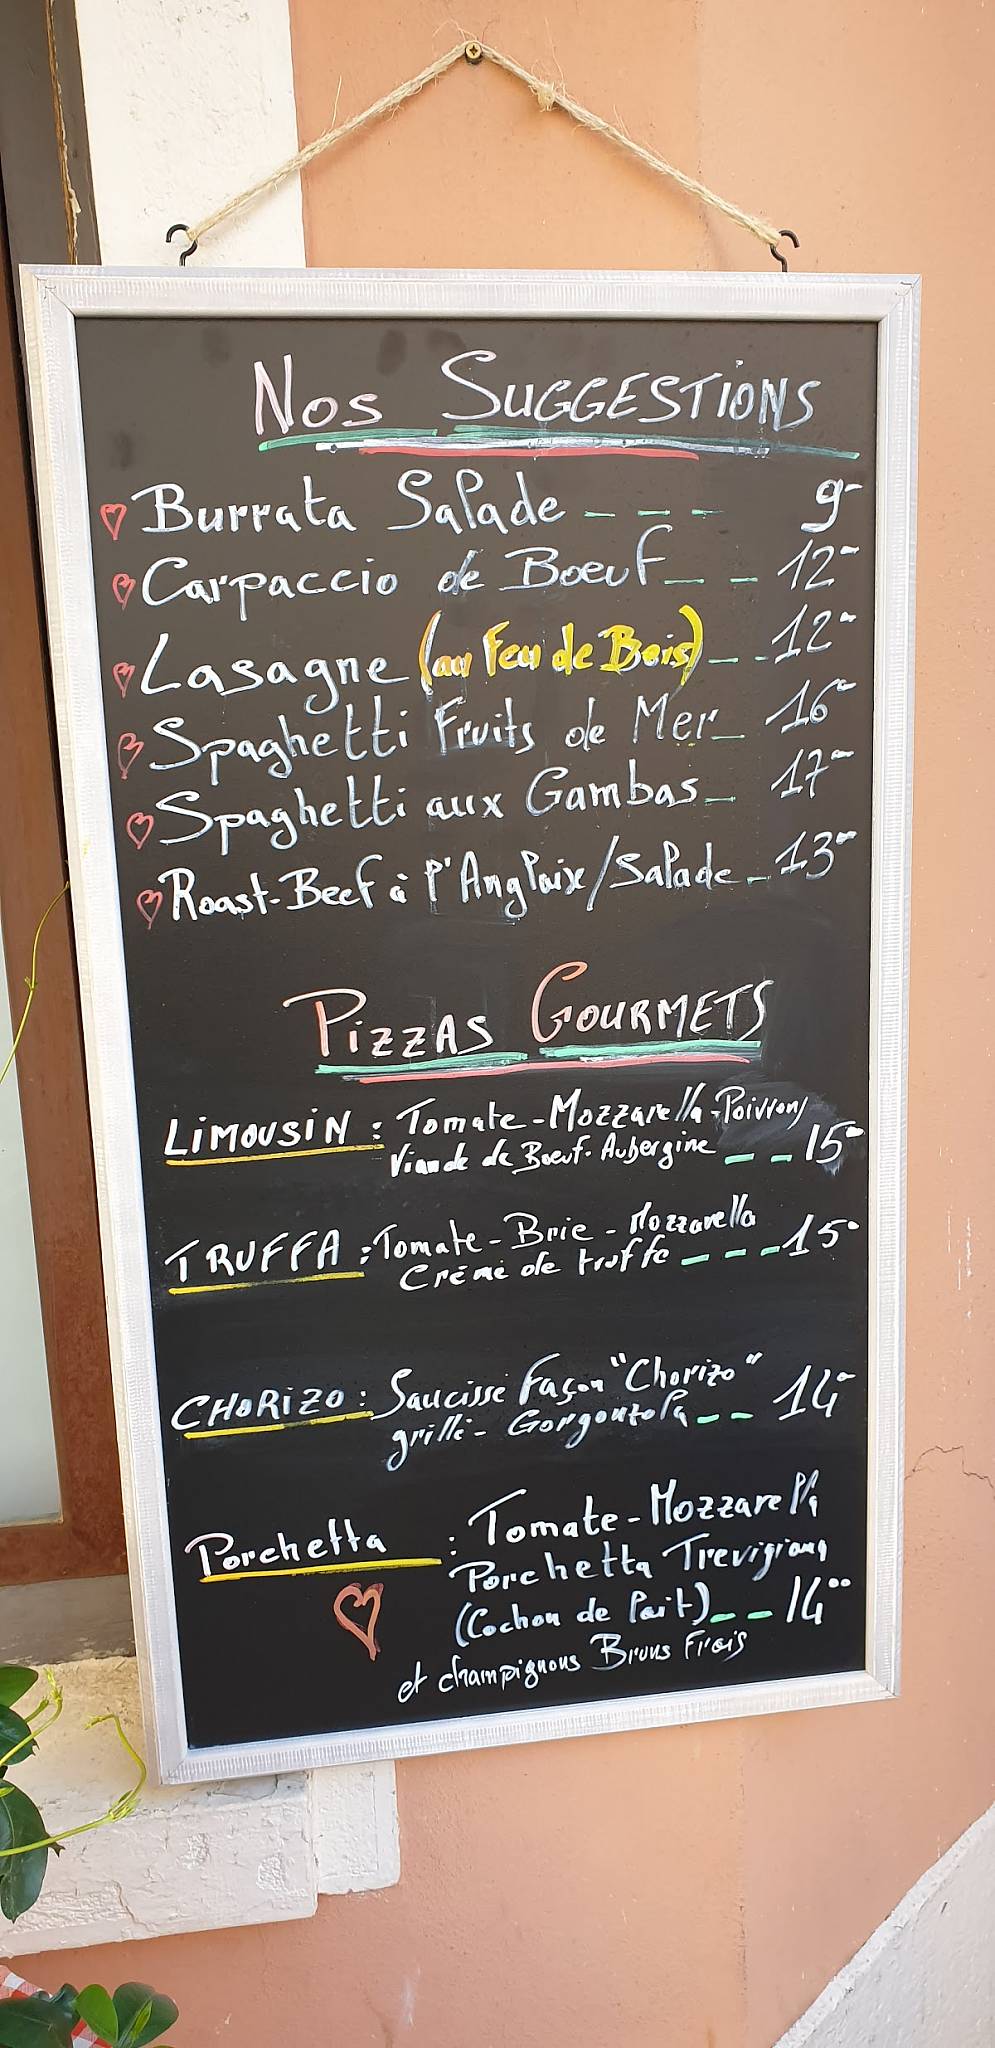 Nos SUGGESTIONS
Burrata Salade - - - 9-
Carpaccio de Boeuf - - 12-
Lasagne (au Feu de Bois) - - 12-
Spaghetti Fruits de Mer - 16-
Spaghetti aux Gambas - 17-
Roast-Beef à l'Anglaix/Salade - 13-
PIZZAS GOURMETS
LIMOUSIN : Tomate - Mozzarella - Poivrons
Viande de Boeuf - Aubergine - - 15-
TRUFFA : Tomate - Brie - Mozzarella
Crème de truffe - - - 15-
CHORIZO : Saucisse façon "Chorizo"
grillé - Gorgonzola - - 14-
Porchetta : Tomate - Mozzarella
Porchetta Trevigiana
(Cochon de lait) - - 14°°
et champignons Bruns Frais